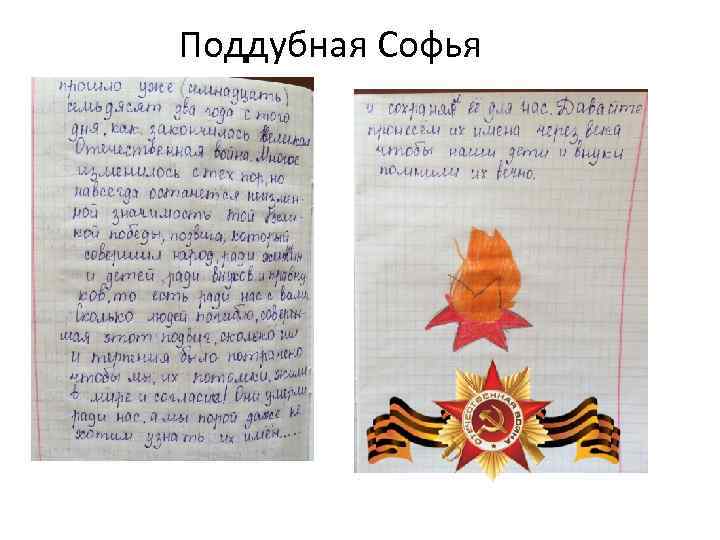 Поддубная Софья
прошло уже (семнадцать)
семьдесят два года с того
дня, как закончилось Великая
Отечественная война. Многое
изменилось с тех пор, но
навсегда останется неизмен-
ной значимость той Вели-
кой победы, подвига, который
совершил народ, ради жизни
и детей, ради внуков и правну
ков, то есть ради нас с вами
Сколько людей погибло, соверш
шая этот подвиг, сколько
и терпения было потрачено
чтобы мы, их потомки, жили
в мире и согласие! Они умерли
ради нас, а мы порой даже не
хотим узнать их имён....
и сохраняя её для нас. Давайте
пронесем их имена через века
чтобы наши дети и внуки
помнили их вечно.
ОТЕЧЕСТВЕННАЯ ВОЙНА